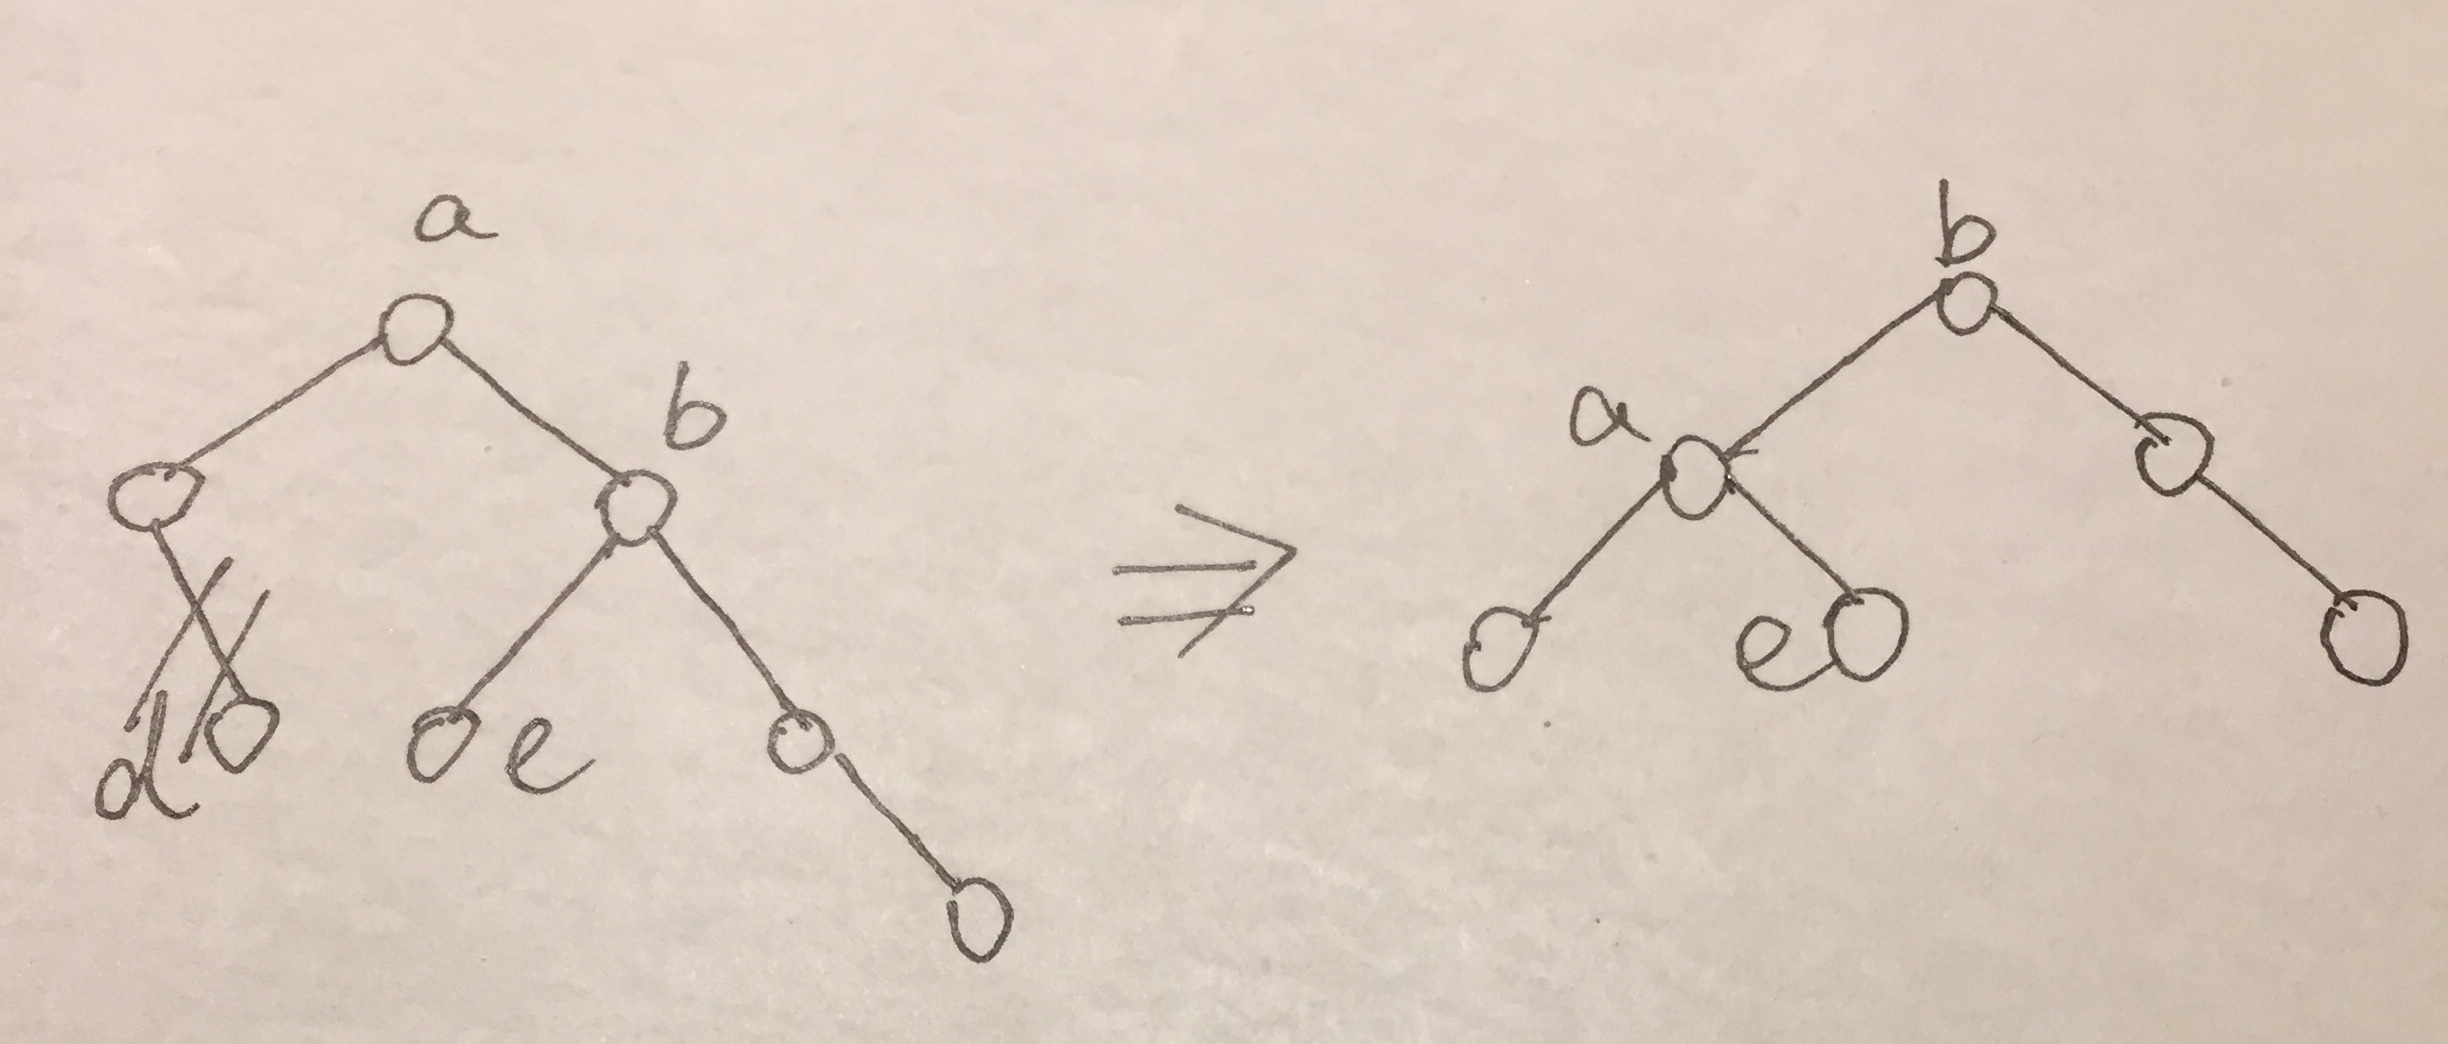 a
b
d
e
b
a
e